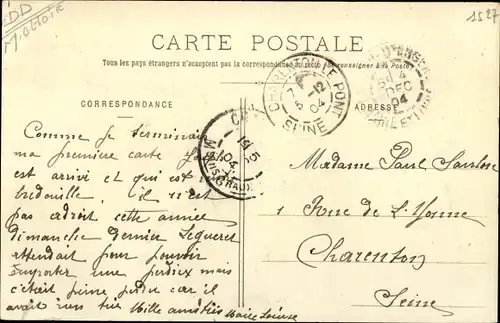 1527
CARTE POSTALE
Tous les pays étrangers n'acceptent pas la correspondance au recto (Se renseigner à la Poste)
CORRESPONDANCE
ADRESSE
CHARENTON LE PONT
5-12
04
SEINE
DEC
04
Comme je terminais
ma première carte
est arrivé et qui est
bredouille. il n'est
pas adroit cette année
dimanche dernier Lequeret
attendait pour pouvoir
emporter une perdrix mais
c'était peine perdue car il
avait rien tué Mille amitiés Marie Louise
Madame Paul
1 Rue de L'Yonne
Charenton
Seine